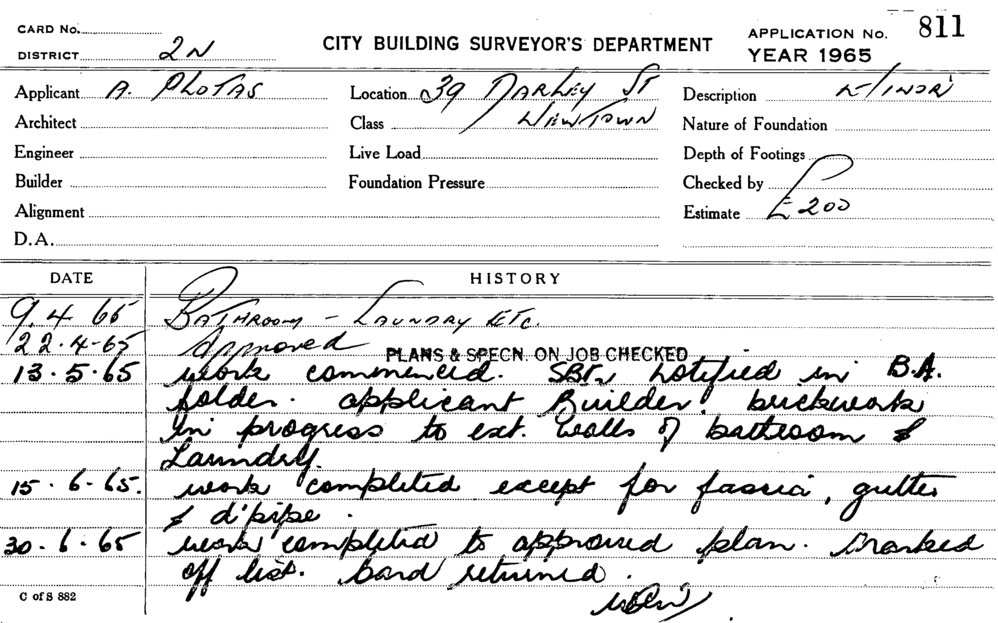 CARD No.
DISTRICT 2N
CITY BUILDING SURVEYOR'S DEPARTMENT
APPLICATION No. 811
YEAR 1965
Applicant A. PLOTAS
Location 39 DARLEY ST
Description MINOR
Architect
Class NEWTOWN
Nature of Foundation
Engineer
Live Load
Depth of Footings
Builder
Foundation Pressure
Checked by
Alignment
Estimate £200
D.A.
DATE HISTORY
9.4 65 BATHROOM - LAUNDRY ETC.
22.4-65 Approved
PLANS & SPECN. ON JOB CHECKED
13.5.65 work commenced. notified in B.A.
folder. applicant Builder. brickwork
in progress to ext. walls of bathroom &
Laundry.
15.6-65. work completed except for fascia, gutter
& d'pipe.
30.6-65 work completed to approved plan. Marked
off list. Card returned.
C of S 882